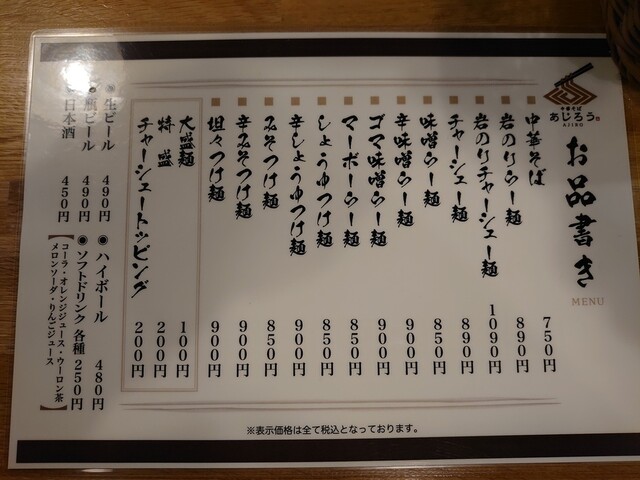 中華そば
あじろう
AJIRO
お品書き
MENU
中華そば 750円
岩のりらー麺 890円
岩のりチャーシュー麺 1090円
チャーシュー麺 890円
味噌らー麺 850円
辛味噌らー麺 900円
ゴマ味噌らー麺 900円
マーボーらー麺 850円
しょうゆつけ麺 850円
辛しょうゆつけ麺 900円
みそつけ麺 850円
辛みそつけ麺 900円
坦々つけ麺 900円
大盛麺 100円
特盛 200円
チャーシュートッピング 200円
◉ 生ビール 490円
瓶ビール 490円
日本酒 450円
◉ ハイボール 480円
◉ ソフトドリンク 各種 250円
【コーラ・オレンジジュース・ウーロン茶
メロンソーダ・りんごジュース】
※表示価格は全て税込となっております。